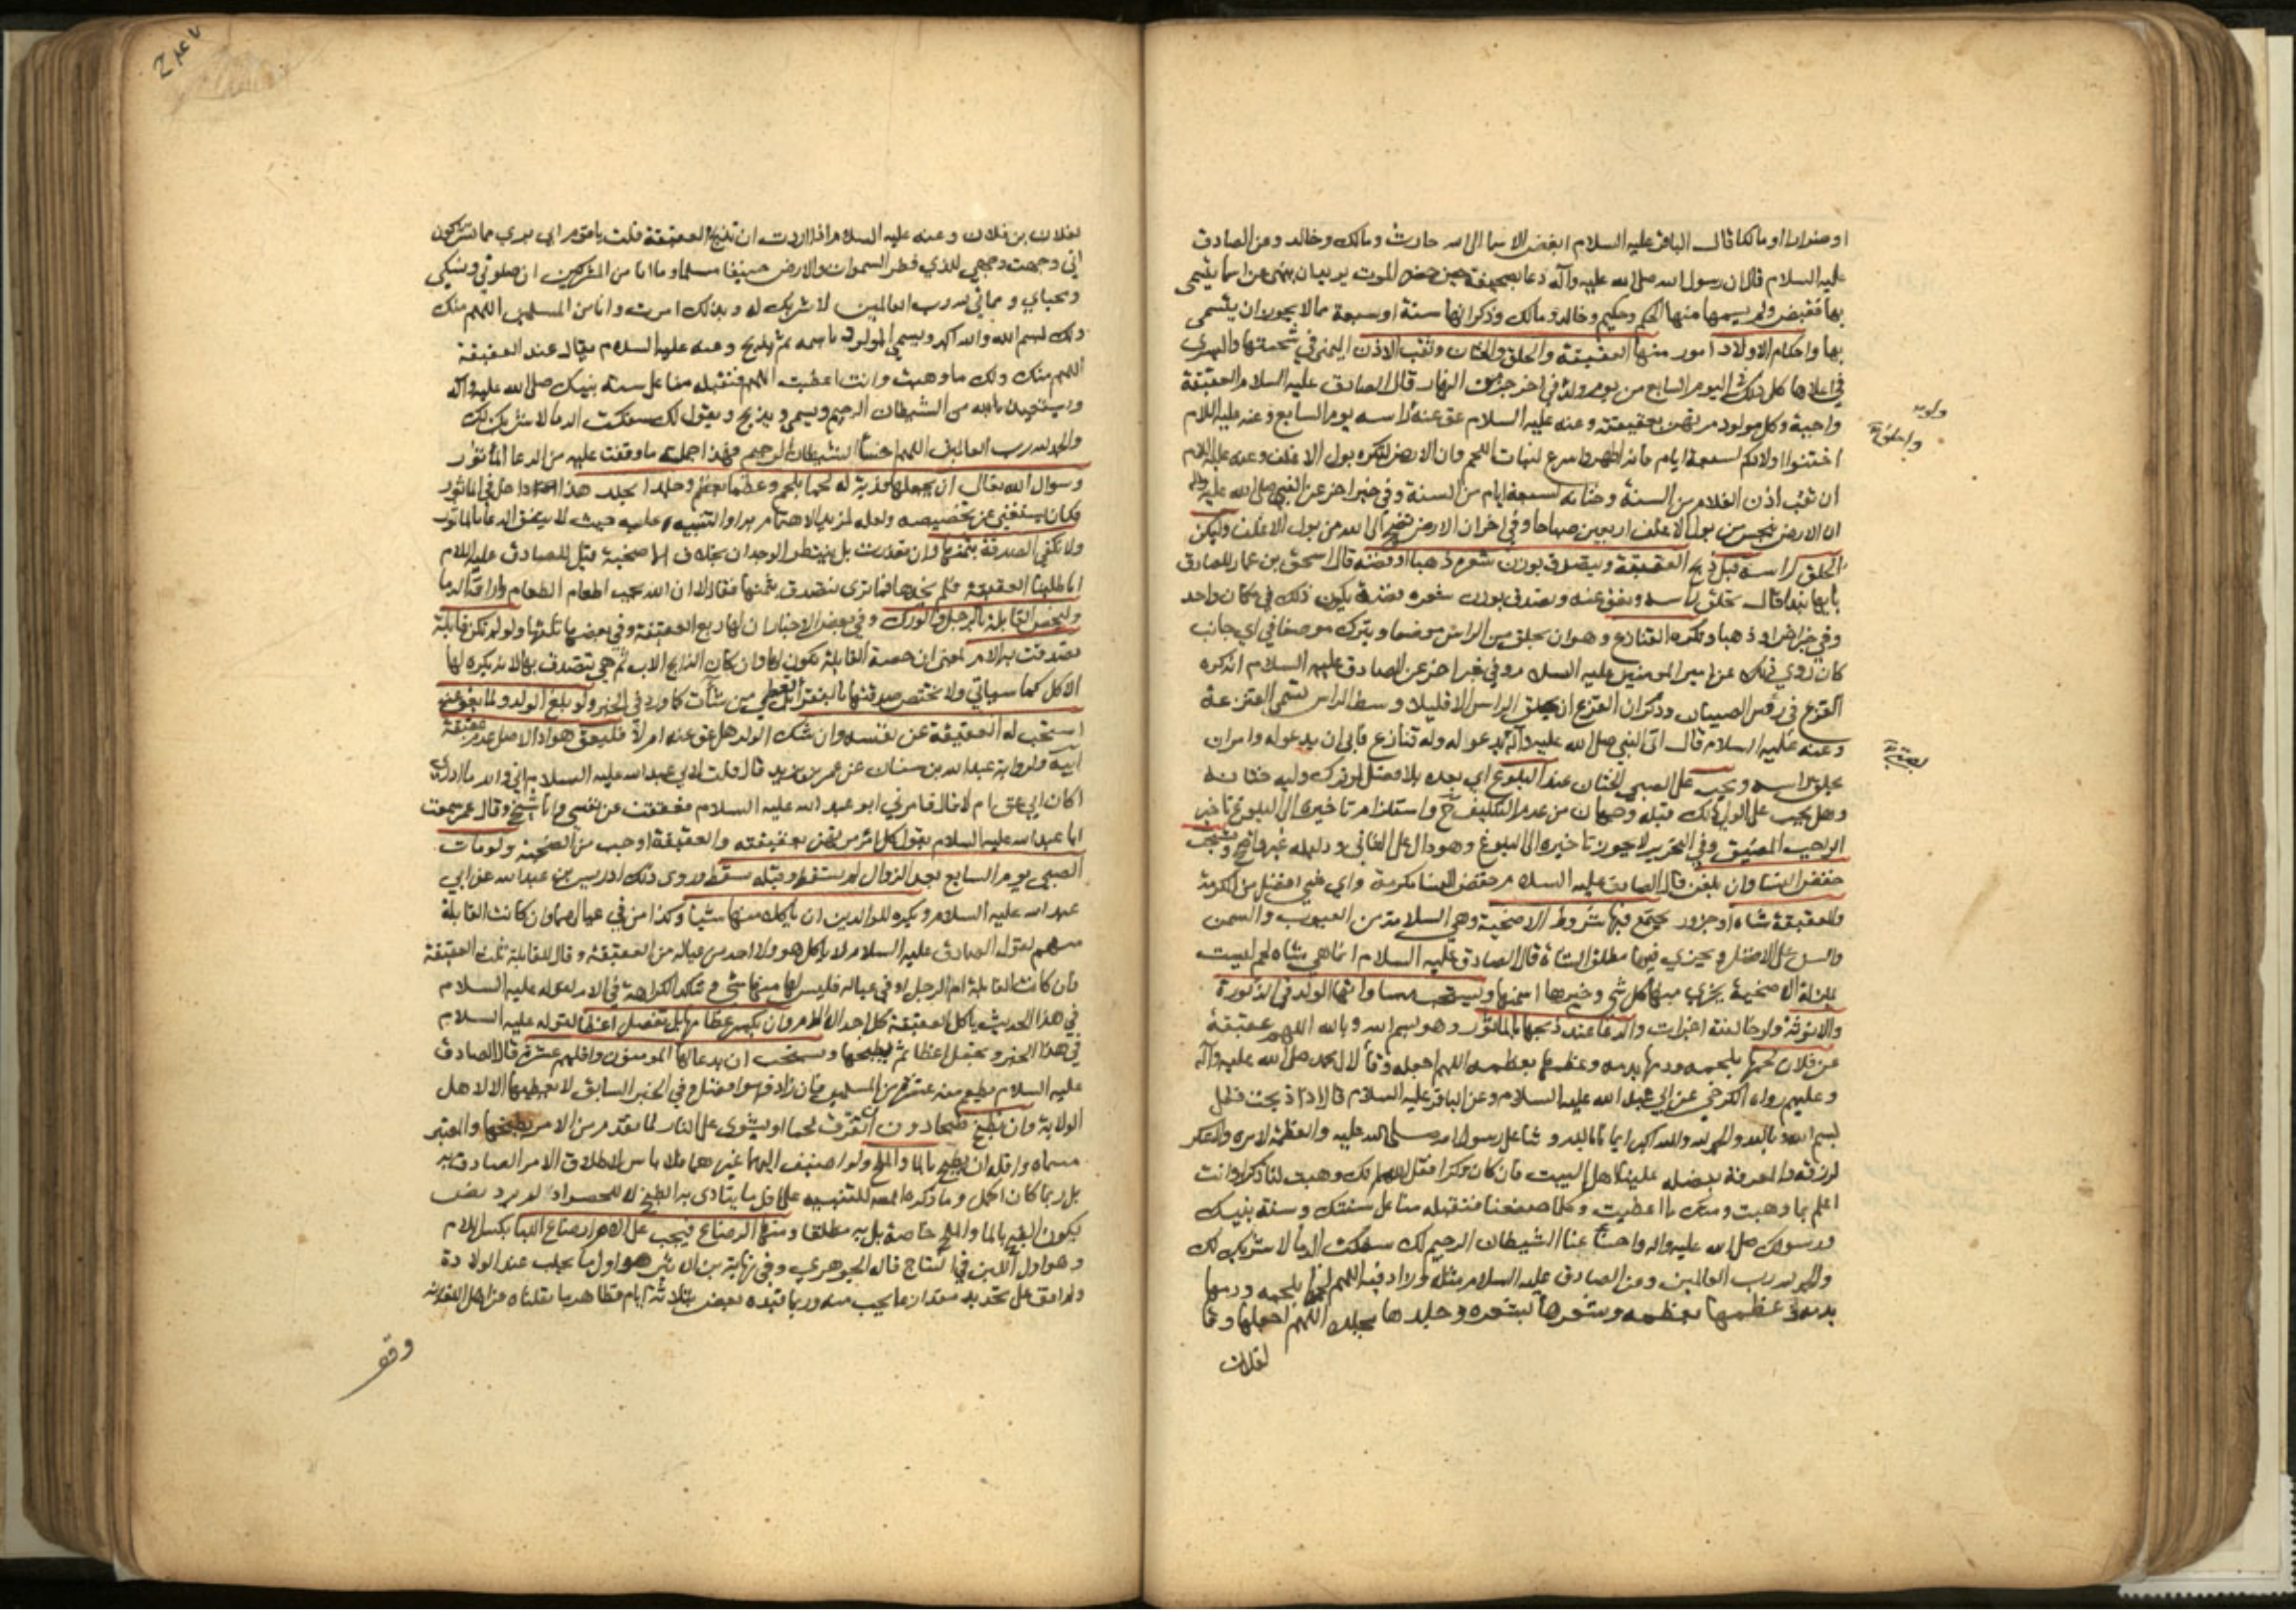 او ضرارا او مالكا قال الباقر عليه السلام ابغض الاسما الى الله حارث ومالك وخالد وعن الصادق
عليه السلام قال ان رسول الله صلى الله عليه وآله دعا بصحيفة حين حضره الموت يريد ان ينهى عن اسما يتسمى
بها فقبض ولم يسمها منها الحكم وحكيم وخالد ومالك وذكر انها ستة او سبعة مما لا يجوز ان يتسمى
بها واحكام الاولاد امور منها العقيقة والحلق والختان وثقب الاذن اليمنى في شحمتها واليسرى
في اعلاها كل ذلك في اليوم السابع من يوم ولد وفي اخر جزء من النهار قال الصادق عليه السلام العقيقة
واجبة وكل مولود مرتهن بعقيقته وعنه عليه السلام عق عنه واحلق راسه يوم السابع وعنه عليه السلام
اختنوا اولادكم لسبعة ايام فانه اطهر واسرع لنبات اللحم وان الارض لتكره بول الاغلف وعنه عليه السلام
ان ثقب اذن الغلام من السنة وختانه لسبعة ايام من السنة وفي خبر اخر عن النبي صلى الله عليه وآله
ان الارض تنجس من بول الاغلف اربعين صباحا وفي اخر ان الارض تضج الى الله من بول الاغلف وليكن
الحلق لراسه قبل ذبح العقيقة ويتصدق بوزن شعره ذهبا او فضة قال اسحق بن عمار للصادق
بايها نبدا قال تحلق راسه وتعق عنه وتصدق بوزن شعره فضة يكون ذلك في مكان واحد
وفي خبر اخر او ذهبا ويكره القنازع وهو ان يحلق من الراس موضعا ويترك موضعا في اي جانب
كان روي ذلك عن امير المومنين عليه السلام وفي خبر اخر عن الصادق عليه السلام انه كره
القزع في رؤس الصبيان وذكر ان القزع ان يحلق الراس الا قليلا وسط الراس تسمى القزعة
وعنه عليه السلام قال اتى النبي صلى الله عليه وآله بصبي يدعو له وله قنازع فابى ان يدعو له وامر ان
يحلق راسه ويجب على الصبي الختان عند البلوغ اي بعده بلا فصل لو ترك وليه ختانه
وهل يجب على الولي ذلك قبله وجهان من عدم التكليف ح واستلزام تاخيره الى البلوغ تاخير
الواجب المضيق وفي التحرير لا يجوز تاخيره الى البلوغ وهو دال على الثاني ودليله غير واضح ويستحب
خفض النسا وان بلغن قال الصادق عليه السلام خفض النسا مكرمة واي شي افضل من المكرمة
والعقيقة شاة او جزور تجتمع فيها شروط الاضحية وهي السلامة من العيوب والسمن
والسن على الافضل ويجزي فيها مطلق الشاة قال الصادق عليه السلام انما هي شاة لحم ليست
بمنزلة الاضحية يجزي منها كل شي وخيرها اسمنها ويستحب مساواتها الولد في الذكورة
والانوثة ولو خالفته اجزات والدعا عند ذبحها بالماثور وهو بسم الله وبالله اللهم عقيقة
عن فلان لحمها بلحمه ودمها بدمه وعظمها بعظمه اللهم اجعله وقا لال محمد صلى الله عليه وآله
وعليهم رواه الكرخي عن ابي عبد الله عليه السلام وعن الباقر عليه السلام قال اذا ذبحت فقل
بسم الله وبالله والحمد لله والله اكبر ايمانا بالله وثنا على رسول الله صلى الله عليه والعظمة لامره والشكر
لرزقه والمعرفة بفضله علينا اهل البيت فان كان ذكرا فقل اللهم انك وهبت لنا ذكرا وانت
اعلم بما وهبت ومنك ما اعطيت وكلما صنعنا فتقبله منا على سنتك وسنة نبيك
ورسولك صلى الله عليه واله واخسأ عنا الشيطان الرجيم لك سفكت الدما لا شريك لك
والحمد لله رب العالمين وعن الصادق عليه السلام مثله وزاد فيه اللهم لحمها بلحمه ودمها
بدمه وعظمها بعظمه وشعرها بشعره وجلدها بجلده اللهم اجعلها وقا
لفلان
لفلان بن فلان وعنه عليه السلام اذا اردت ان تذبح العقيقة قلت يا قوم اني بري مما تشركون
اني وجهت وجهي للذي فطر السموات والارض حنيفا مسلما وما انا من المشركين ان صلوتي ونسكي
ومحياي ومماتي لله رب العالمين لا شريك له وبذلك امرت وانا من المسلمين اللهم منك
ولك بسم الله والله اكبر ويسمي المولود باسمه ثم يذبح وعنه عليه السلام يقال عند العقيقة
اللهم منك ولك ما وهبت وانت اعطيت اللهم فتقبله منا على سنة نبيك صلى الله عليه وآله
ويستعيذ بالله من الشيطان الرجيم ويسمي ويذبح ويقول لك سفكت الدما لا شريك لك
والحمد لله رب العالمين اللهم اخسأ الشيطان الرجيم فهذا جملة ما وقفت عليه من الدعا الماثور
وسوال الله تعالى ان يجعلها فدية له لحما بلحم وعظما بعظم وجلدا بجلد هذا داخل في الماثور
فكان يستغنى عن تخصيصه ولعله لمزيد الاهتمام به او التنبيه عليه حيث لا يتفق الدعا بالماثور
ولا تكفي الصدقة بثمنها وان تعذرت بل ينتظر الوجدان بخلاف الاضحية قيل للصادق عليه السلام
انا طلبنا العقيقة فلم نجدها فما ترى نتصدق بثمنها فقال لا ان الله يحب اطعام الطعام واراقة الدما
وليخص القابلة بالرجل والورك وفي بعض الاخبار ان لها ربع العقيقة وفي بعضها ثلثها ولو لم تكن قابلة
تصدقت به الام بمعنى ان حصة القابلة تكون لها وان كان الذابح الاب ثم هي تتصدق بها لانه يكره لها
الاكل كما سياتي ولا تختص صدقتها بالفقرا بل تعطي من شات كما ورد في الخبر ولو بلغ الولد ولما يعق عنه
استحب له العقيقة عن نفسه وان شك الولد هل عق عنه ام لا فليعق هو اذ الاصل عدم عقيقة
ابيه ولرواية عبد الله بن سنان عن عمر بن يزيد قال قلت لابي عبد الله عليه السلام اني والله ما ادري
اكان ابي عق عني ام لا قال فامرني ابو عبد الله عليه السلام فعققت عن نفسي وانا شيخ وقال عمر سمعت
ابا عبد الله عليه السلام يقول كل امرئ مرتهن بعقيقته والعقيقة اوجب من الضحية ولو مات
الصبي يوم السابع بعد الزوال لم تسقط وقبله تسقط وروى ذلك ادريس بن عبد الله عن ابي
عبد الله عليه السلام ويكره للوالدين ان ياكلا منها شيئا وكذا من في عيالهما وان كانت القابلة
منهم لقول الصادق عليه السلام لا ياكل هو ولا احد من عياله من العقيقة وقال للقابلة ثلث العقيقة
فان كانت القابلة ام الرجل او في عياله فليس لها منها شي وتتاكد الكراهة في الام لقوله عليه السلام
في هذا الحديث ياكل العقيقة كل احد الا الام وان تكسر عظامها بل تفصل اعضا لقوله عليه السلام
في هذا الخبر ويجعل اعضا ثم يطبخها ويستحب ان يدعا لها المومنون واقلهم عشرة قال الصادق
عليه السلام يطعم منه عشرة من المسلمين فان زاد فهو افضل وفي الخبر السابق لا يعطيها الا لاهل
الولاية وان تطبخ طبخا دون ان تفرق لحما او يشوى على النار لما تقدم من الامر بطبخها والمعتبر
مسماه واقله ان يطبخ بالما والملح ولو اضيف اليهما غيرهما فلا باس لاطلاق الامر الصادق به
بل ربما كان اكمل وما ذكره المصنف للتنبيه على اقل ما يتادى به الطبخ لا للحصر اذ لم يرد نص
بكون القيد بالما والملح خاصة بل به مطلقا ومنها الرضاع فيجب على الام ارضاع اللبا بكسر اللام
وهو اول اللبن في النتاج قاله الجوهري وفي نهاية ابن الاثير هو اول ما يحلب عند الولادة
ولم اقف على تحديد مقدار ما يجب منه وربما قيده بعض بثلاثة ايام وظاهر ما نقلناه عن اهل اللغة انه
وقف